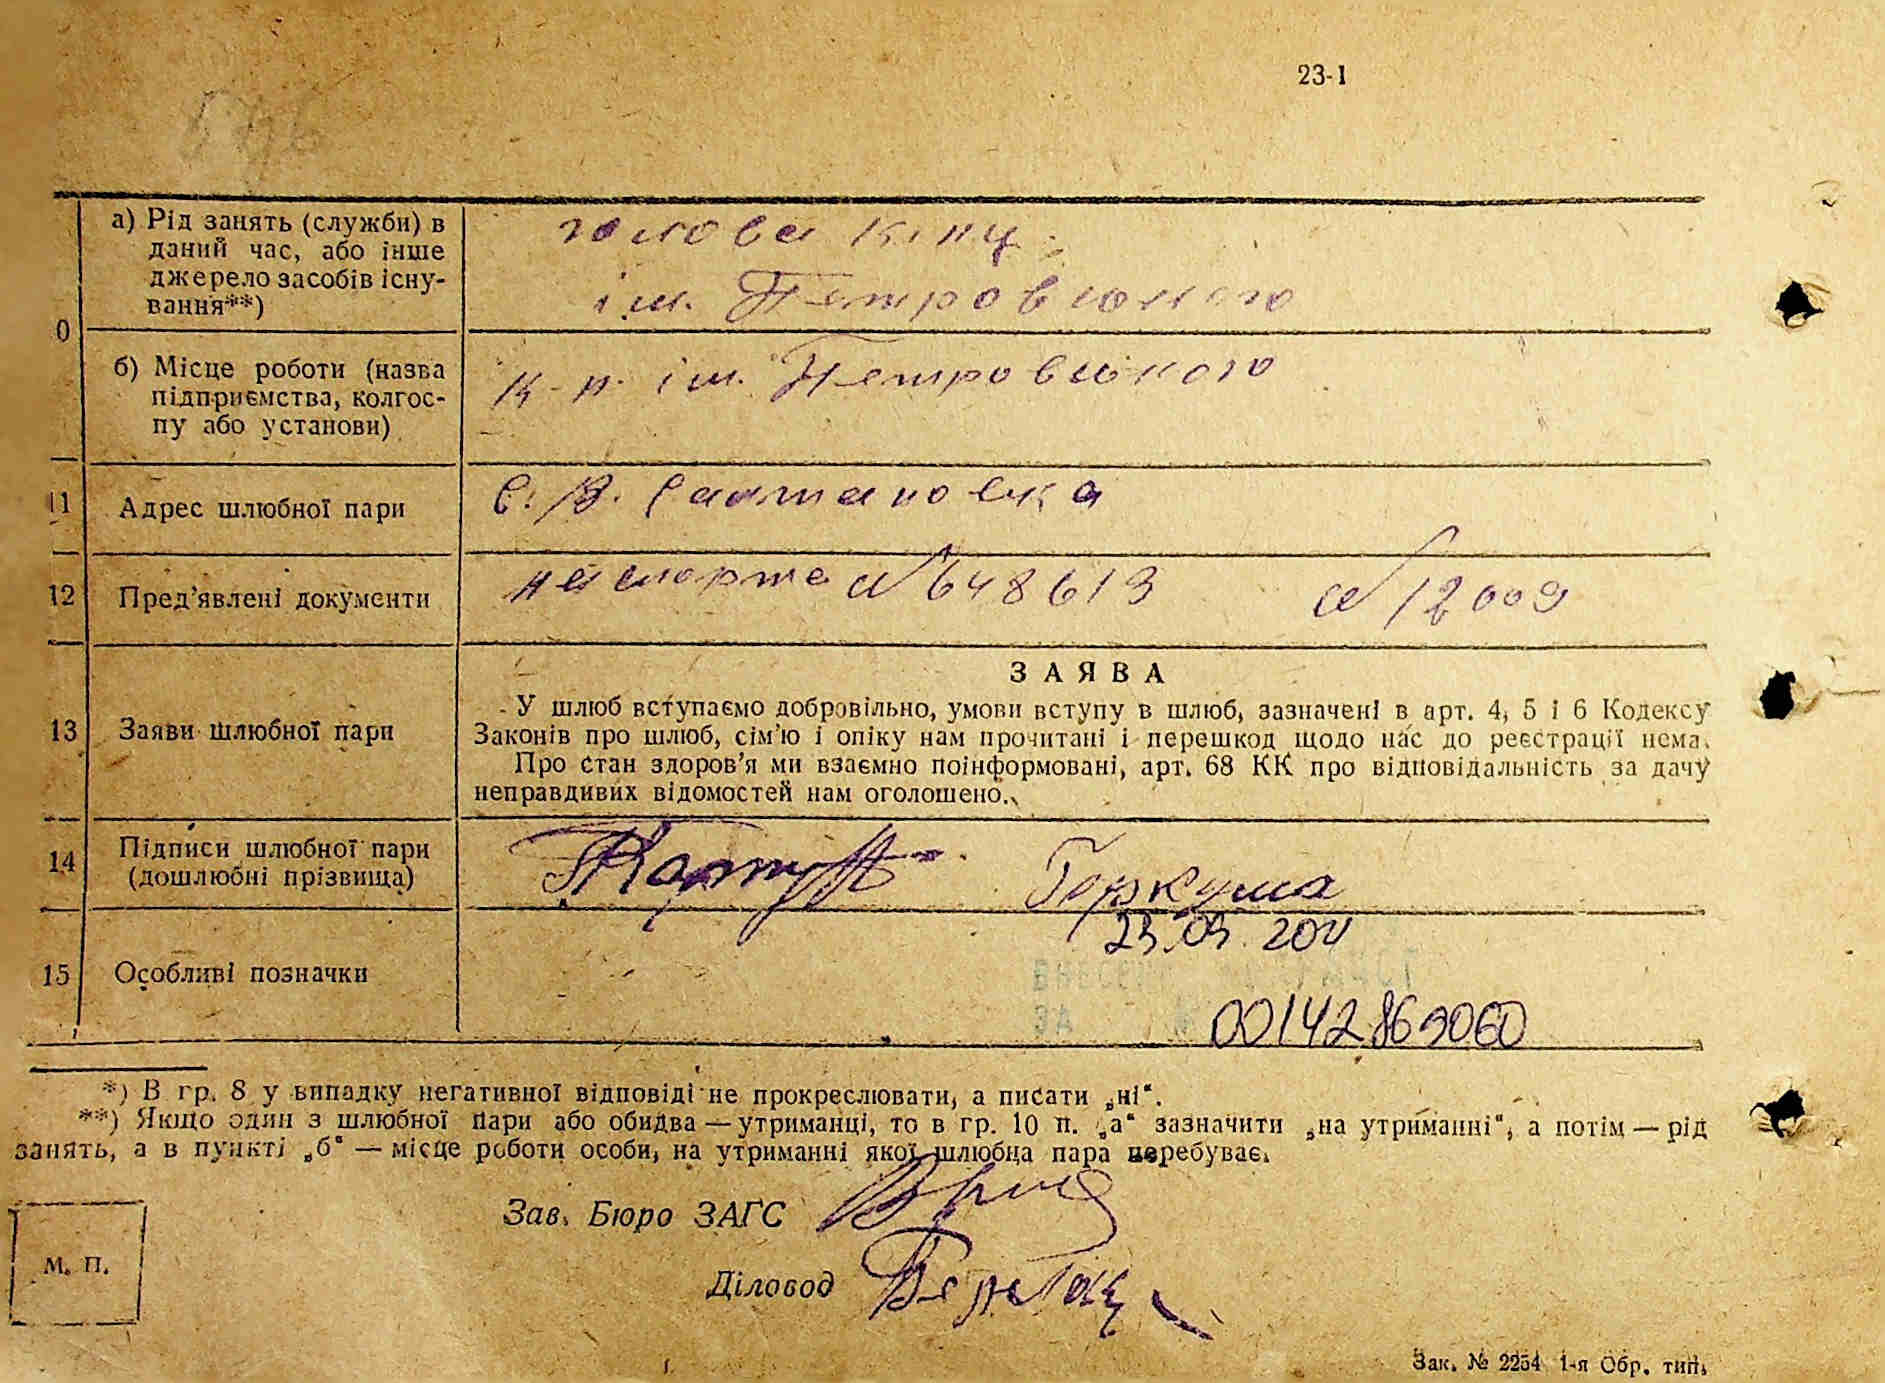 23-1
а) Рід занять (служби) в
даний час, або інше
джерело засобів існу-
вання**)
голова
ім. Петровського
0
б) Місце роботи (назва
підприємства, колгос-
пу або установи)
к-п. ім. Петровського
11
Адрес шлюбної пари
с. В.
12
Пред’явлені документи
паспорта № 648613 № 12009
13
Заяви шлюбної пари
ЗАЯВА
У шлюб вступаємо добровільно, умови вступу в шлюб, зазначені в арт. 4, 5 і 6 Кодексу
Законів про шлюб, сім’ю і опіку нам прочитані і перешкод щодо нас до реєстрації нема.
Про стан здоров’я ми взаємно поінформовані, арт. 68 КК про відповідальність за дачу
неправдивих відомостей нам оголошено.
14
Підписи шлюбної пари
(дошлюбні прізвища)
Горкуша
23.03.2011
15
Особливі позначки
ВНЕСЕНО
ЗА № 00142869060
*) В гр. 8 у випадку негативної відповіді не прокреслювати, а писати „ні“.
**) Якщо один з шлюбної пари або обидва — утриманці, то в гр. 10 п. „а“ зазначити „на утриманні“, а потім — рід
занять, а в пункті „б“ — місце роботи особи, на утриманні якої шлюбна пара перебуває.
Зав. Бюро ЗАГС
Діловод
М. П.
Зак. № 2254 1-я Обр. тип.